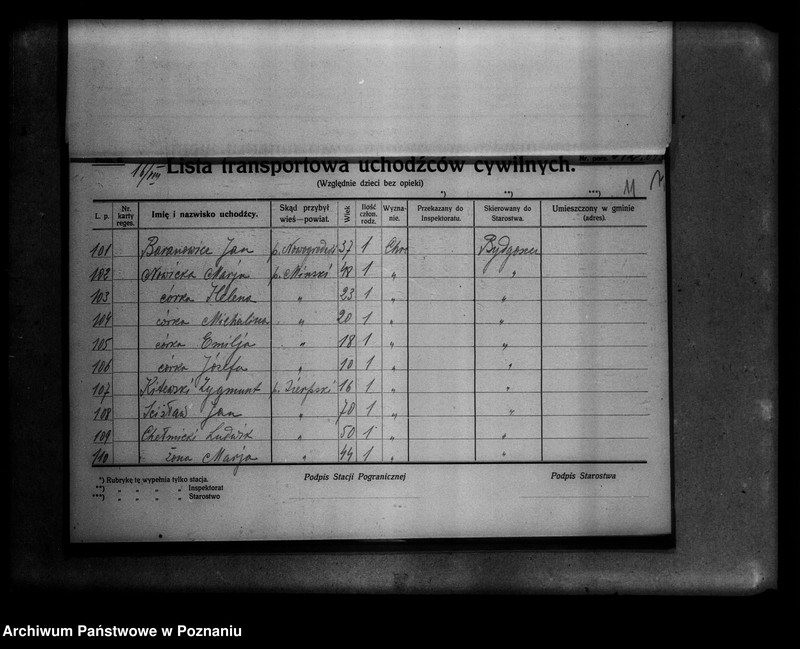 16/VIII Lista transportowa uchodźców cywilnych.
(Względnie dzieci bez opieki)
*) **) ***) M
L. p. Nr. karty reges. Imię i nazwisko uchodźcy. Skąd przybył wieś—powiat. Wiek Ilość człon. rodz. Wyznanie. Przekazany do Inspektoratu. Skierowany do Starostwa. Umieszczony w gminie (adres).
101 Baranowicz Jan p. Nowogródzki 37 1 Chrz Bydgoszcz
102 Nowicka Marja p. Miński 48 1 „ „
103 córka Helena „ 23 1 „ „
104 córka Michalina „ 20 1 „ „
105 córka Emilja „ 18 1 „ „
106 córka Józefa „ 10 1 „ „
107 Zygmunt p. Sierpski 16 1 „ „
108 Jan „ 70 1 „ „
109 Chełmicki Ludwik „ 50 1 „ „
110 żona Marja „ 44 1 „ „
*) Rubrykę tę wypełnia tylko stacja.
**) „ „ „ „ Inspektorat
***) „ „ „ „ Starostwo
Podpis Stacji Pogranicznej
Podpis Starostwa
Archiwum Państwowe w Poznaniu